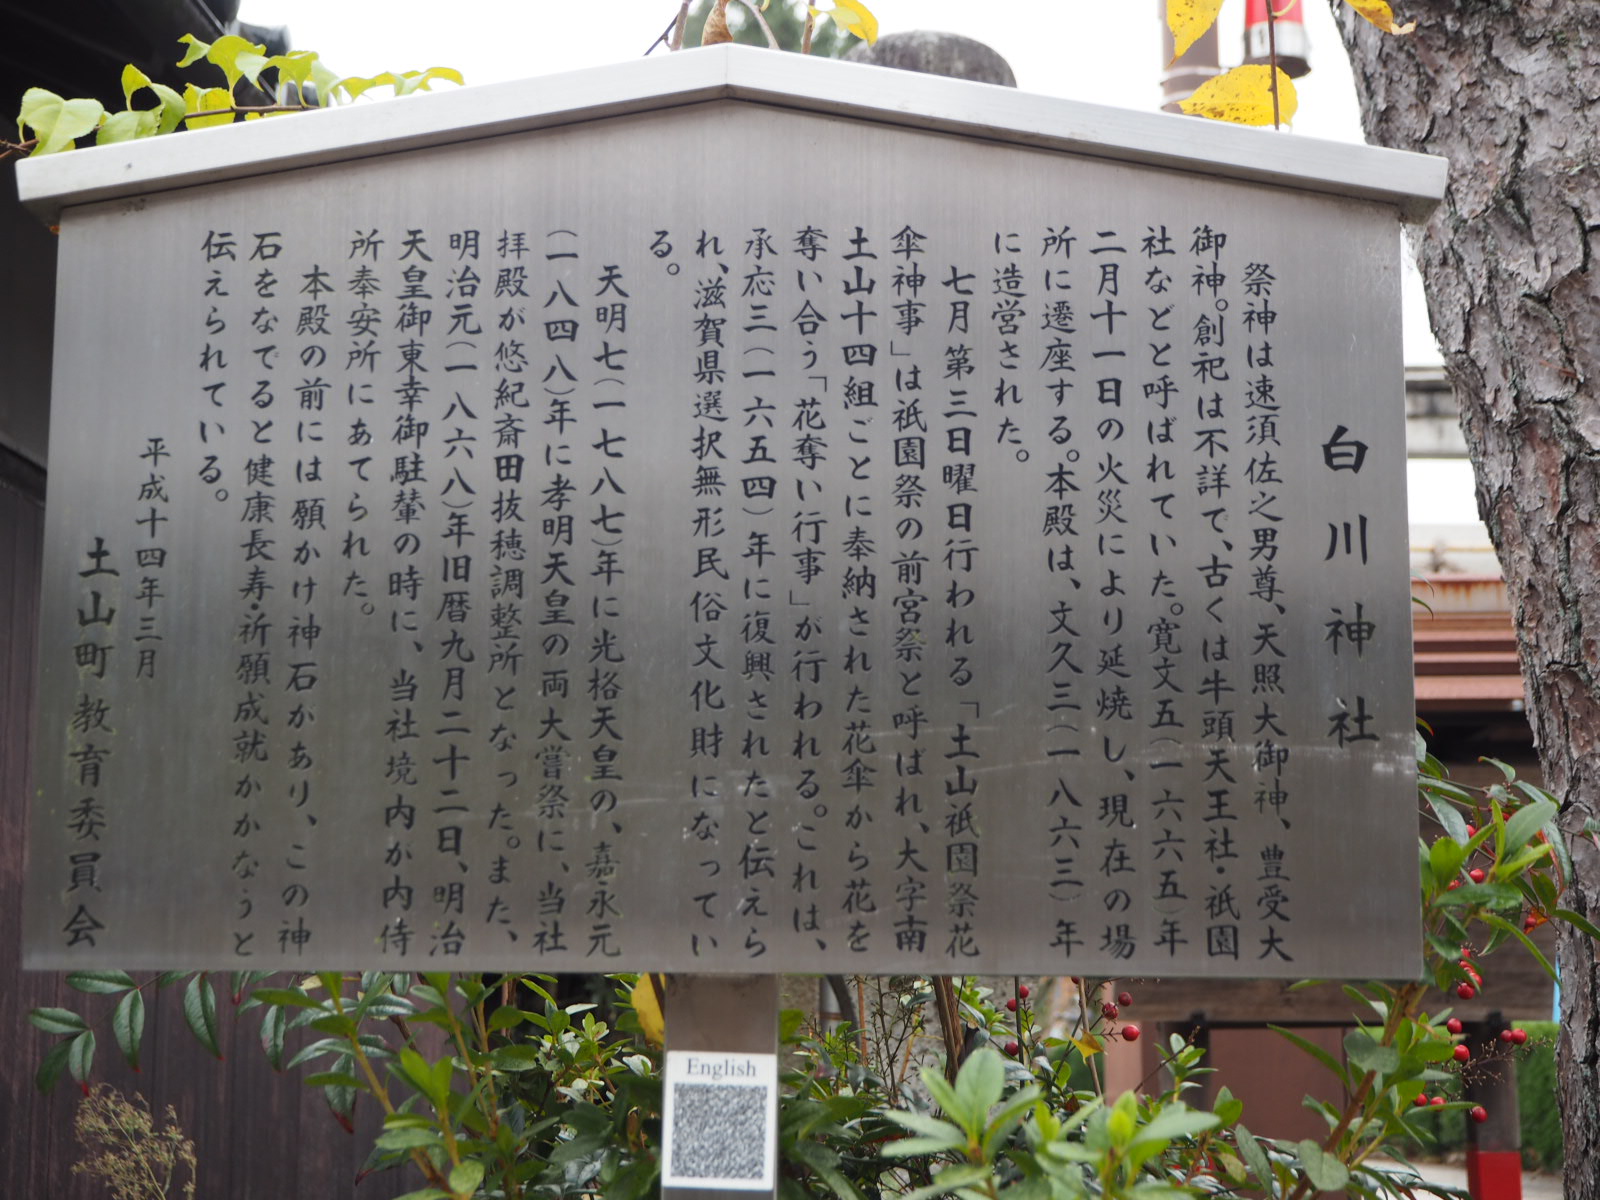 白川神社
祭神は速須佐之男尊、天照大御神、豊受大
御神。創祀は不詳で、古くは牛頭天王社・祇園
社などと呼ばれていた。寛文五(一六六五)年
二月十一日の火災により延焼し、現在の場
所に遷座する。本殿は、文久三(一八六三)年
に造営された。
七月第三日曜日行われる「土山祇園祭花
傘神事」は祇園祭の前宮祭と呼ばれ、大字南
土山十四組ごとに奉納された花傘から花を
奪い合う「花奪い行事」が行われる。これは、
承応三(一六五四)年に復興されたと伝えら
れ、滋賀県選択無形民俗文化財になってい
る。
天明七(一七八七)年に光格天皇の、嘉永元
(一八四八)年に孝明天皇の両大嘗祭に、当社
拝殿が悠紀斎田抜穂調整所となった。また、
明治元(一八六八)年旧暦九月二十二日、明治
天皇御東幸御駐輦の時に、当社境内が内侍
所奉安所にあてられた。
本殿の前には願かけ神石があり、この神
石をなでると健康長寿・祈願成就かかなうと
伝えられている。
平成十四年三月
土山町教育委員会
English